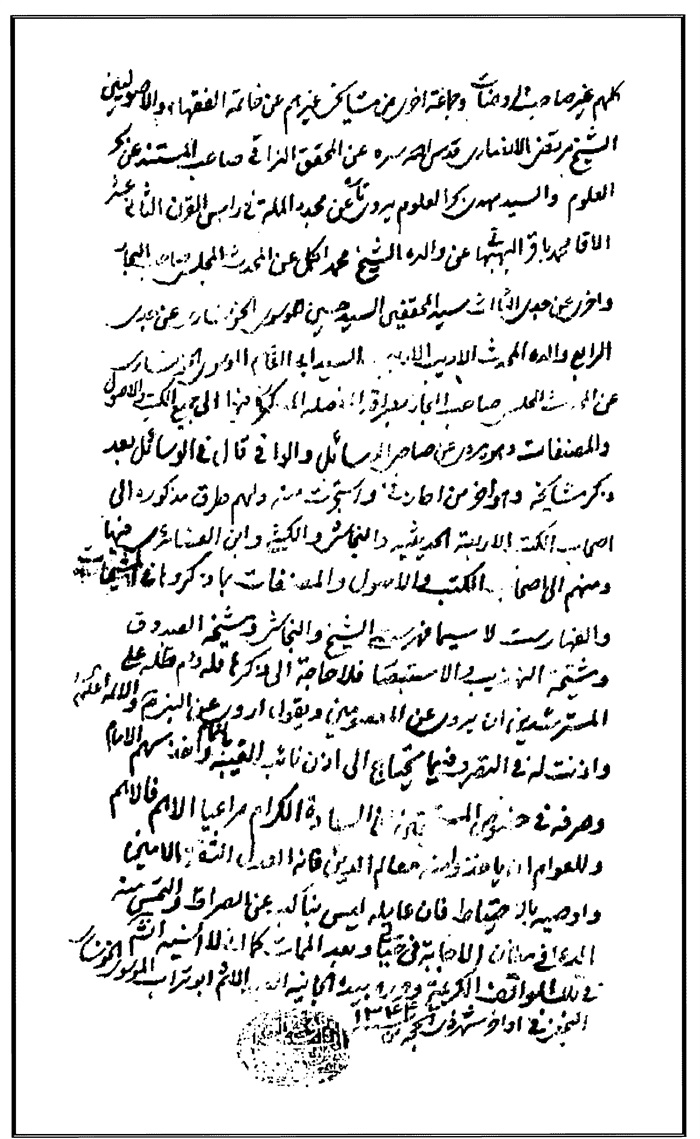 كلهم عن صاحب الروضات وجماعة اخرى من مشايخى غيرهم عن خاتمة الفقهاء والاصوليين
الشيخ مرتضى الانصارى قدس الله سره عن المحقق النراقي صاحب المستند عن بحر
العلوم والسيد مهدى بحر العلوم يروى تارة عن مجدد الملة في راس القرن الثاني عشر
الاقا محمد باقر البهبهاني عن والده الشيخ محمد اكمل عن المحدث المجلسي صاحب البحار
واخرى عن جدى الثالث سيد المحققين السيد حسين الموسوى الخونسارى عن جدى
الرابع والده المحدث الاديب السيد ابى القاسم الموسوى الخونسارى
عن المحدث المجلسي صاحب البحار بطرقه المفصلة المذكورة فيها الى جميع الكتب والاصول
والمصنفات وهو يروى عن صاحبى الوسائل والوافي قال في الوسائل بعد
ذكر مشايخه وهو اخر من اجازنى واستجزت منه ولهم طرق مذكوره الى
اصحاب الكتب الاربعة الحديثيه والنجاشى والكشي وابن الغضائرى منها
ومنهم الى اصحاب الكتب والاصول والمصنفات بما ذكروها في المشيخات
والفهارست لا سيما فهرست الشيخ والنجاشى ومشيخة الصدوق
ومشيخة التهذيب والاستبصار فلا حاجة الى ذكرها فله دام ظله على
المسترشدين ان يروى عن المعصومين ويقول اروى عن النبي واله
واذنت له في التصرف فيما يحتاج الى اذن نائب الغيبة واخذ سهم الامام
وصرفه في السادة الكرام مراعيا الاهم فالاهم
وللعوام ان ياخذوا منه معالم الدين فانه العدل الثقة الامين
واوصيه بالاحتياط فان عامله ليس بناكب عن الصراط والتمس منه
الدعا في مظان الاجابة في حياتى وبعد الممات كما انى لا انسيه انشاء الله
في تلك المواقف الكريمة وحرره بيده الجانيه ابو تراب الموسوى الخونسارى
النجفى في اواخر شهر ذى الحجة ١٣٤٤